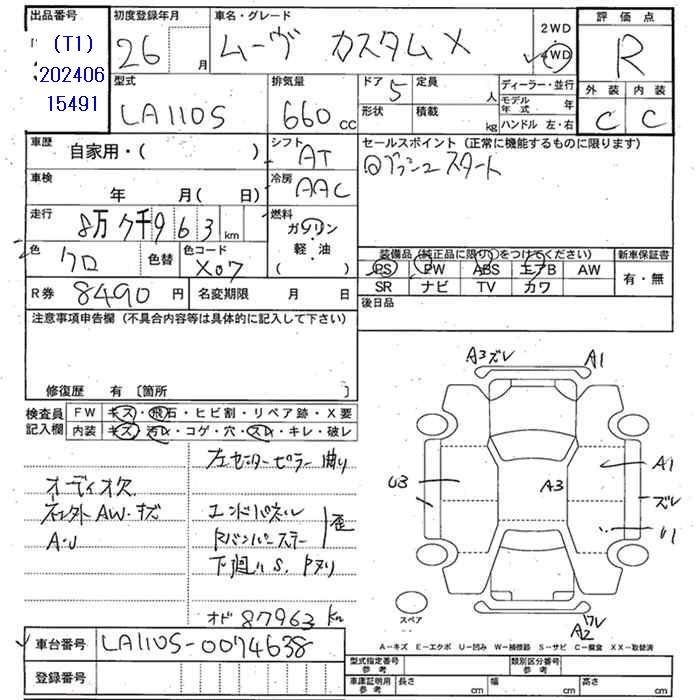 出品番号 初度登録年月 車名・グレード 評価点
(T1)
202406
15491
26 月 ムーヴ カスタムX 2WD 4WD R
型式 排気量 ドア 定員 ディーラー・並行 外装 内装
LA110S 660 cc 5 人 モデル年式 年 C C
形状 積載 kg ハンドル 左・右
車歴 シフト セールスポイント (正常に機能するものに限ります)
自家用・( ) AT プッシュスタート
車検 冷房
年 月(日) AAC
走行 燃料
8万7千963 km ガソリン
軽・油
( )
色 色替 色コード 装備品(純正品に限り○をつけてください) 新車保証書
クロ X07 PS PW ABS エアB AW 有・無
SR ナビ TV カワ
R券 8490 円 名変期限 月 日 後日品
注意事項申告欄(不具合内容等は具体的に記入して下さい)
修復歴 有 〔箇所 〕
検査員記入欄 FW キズ・飛石・ヒビ割・リペア跡・X要
内装 キズ・汚レ・コゲ・穴・スレ・キレ・破レ
左センターピラー曲り
オーディオ欠
AW.キズ
A・U
エンドパネル
Rバンパーステー
歪
下廻りS.Pヌリ
オド 87963 km
A3ズレ A1
U3 A3 A1
ズレ
U1
スペア
A2ワレ
A-キズ E-エクボ U-凹み W-補修跡 S-サビ C-腐食 XX-取替済
車台番号 LA110S-0074638
登録番号
型式指定番号 参考 類別区分番号 参考
車庫証明用 参考 長さ cm 幅 cm 高さ cm